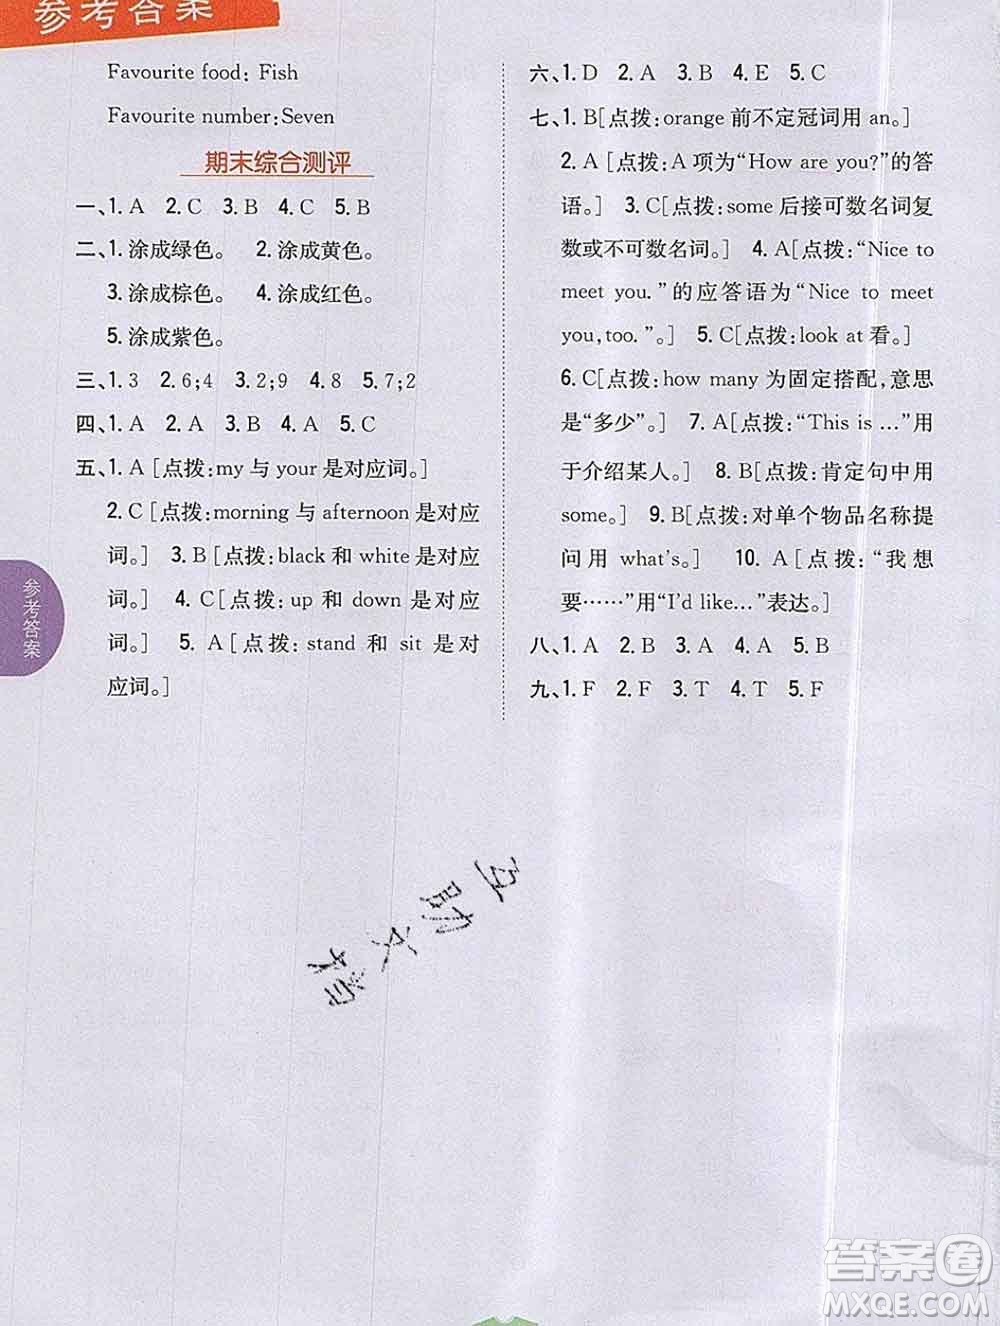 参考答案
Favourite food: Fish
Favourite number:Seven
期末综合测评
一、1. A 2. C 3. B 4. C 5. B
二、1. 涂成绿色。 2. 涂成黄色。
3. 涂成棕色。 4. 涂成红色。
5. 涂成紫色。
三、1. 3 2. 6;4 3. 2;9 4. 8 5. 7;2
四、1. A 2. A 3. B 4. A 5. C
五、1. A[点拨:my 与 your 是对应词。]
2. C[点拨:morning 与 afternoon 是对应
词。] 3. B[点拨:black 和 white 是对应
词。] 4. C[点拨:up 和 down 是对应
词。] 5. A[点拨:stand 和 sit 是对
应词。]
参考答案
六、1. D 2. A 3. B 4. E 5. C
七、1. B[点拨:orange 前不定冠词用 an。]
2. A[点拨:A 项为“How are you?”的答
语。] 3. C[点拨:some 后接可数名词复
数或不可数名词。] 4. A[点拨:“Nice to
meet you.”的应答语为“Nice to meet
you,too.”。] 5. C[点拨:look at 看。]
6. C[点拨:how many 为固定搭配,意思
是“多少”。] 7. A[点拨:“This is …”用
于介绍某人。] 8. B[点拨:肯定句中用
some。] 9. B[点拨:对单个物品名称提
问用 what's。] 10. A[点拨:“我想
要……”用“I'd like…”表达。]
八、1. A 2. B 3. A 4. A 5. B
九、1. F 2. F 3. T 4. T 5. F
互助文档
答案圈
MXQE.COM